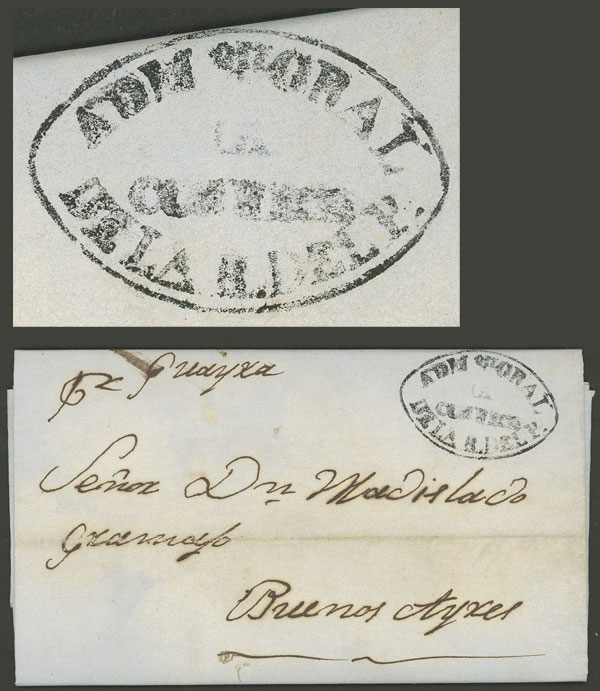 ADMON GRAL
DE
CORREOS
DE LA R. DEL P.
Pr Guayra
ADMON GRAL
DE
CORREOS
DE LA R. DEL P.
Señor Dn Madislado
Gramajo
Buenos Ayres